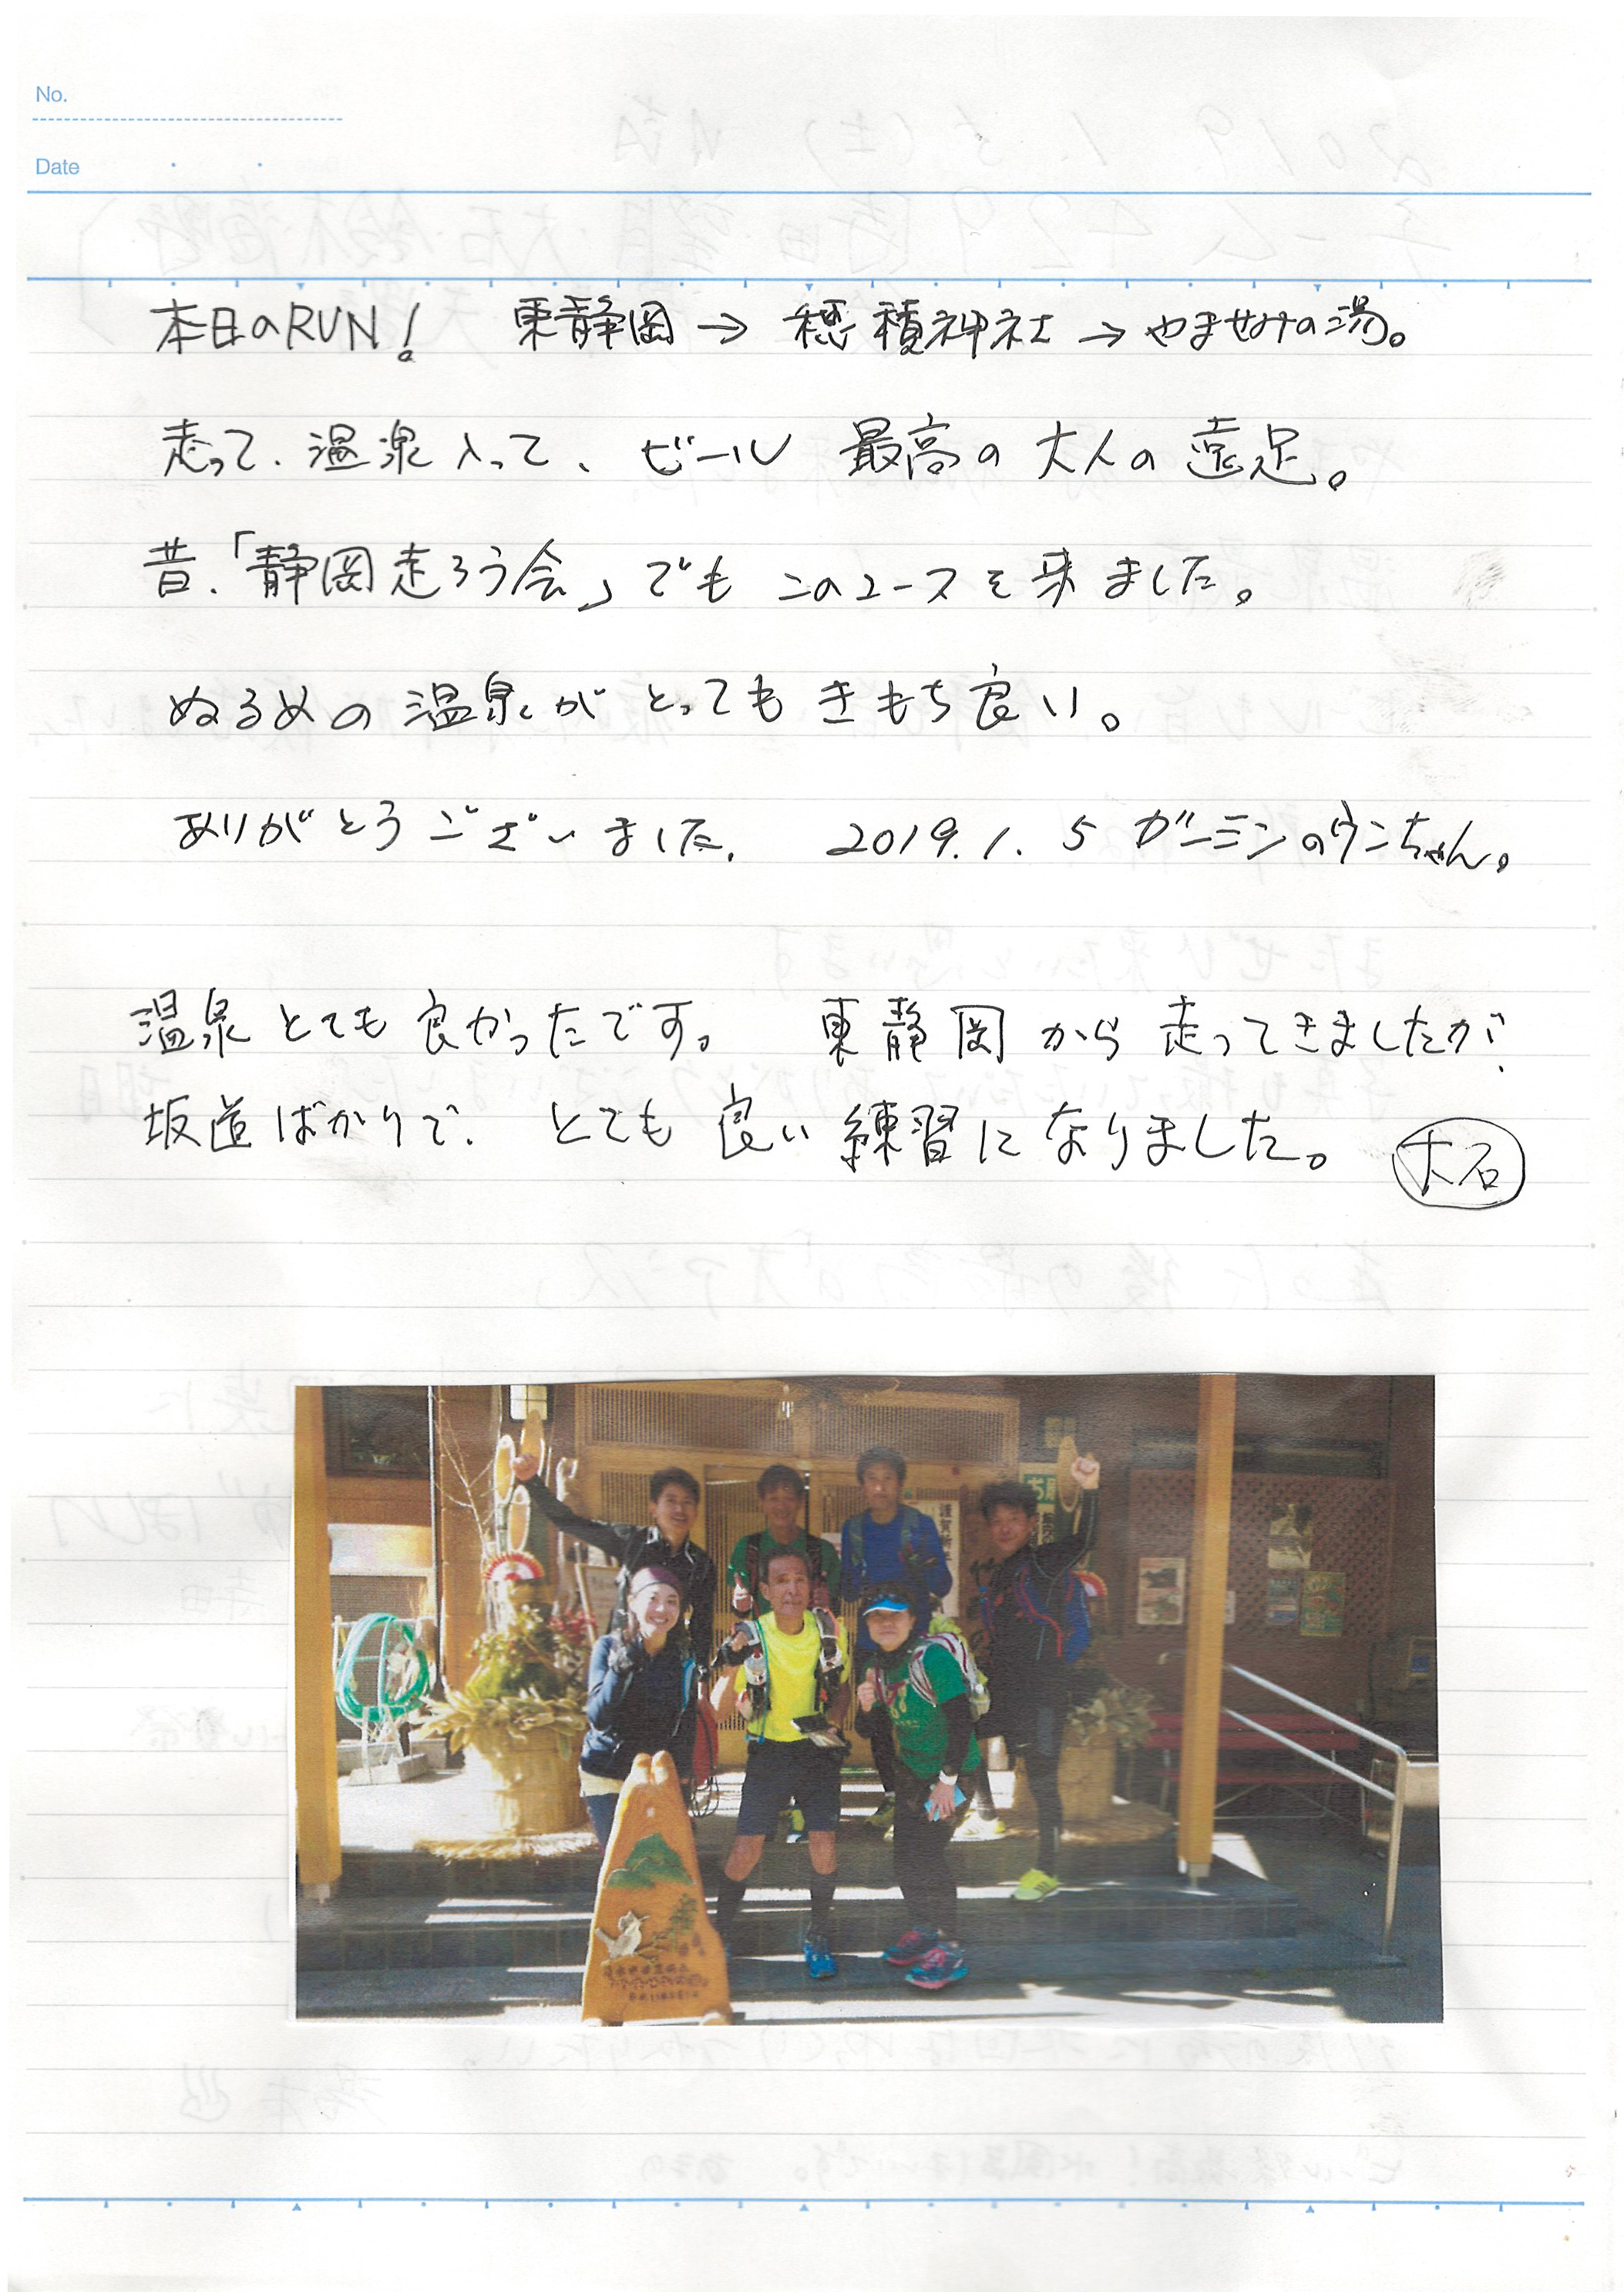 No.
Date
本日のRUN! 東静岡→穂積神社→やませみの湯。
走って、温泉入って、ビール 最高の大人の遠足。
昔、「静岡走ろう会」でもこのコースを来ました。
ぬるめの温泉がとってもきもち良い。
ありがとうございました。 2019.1.5 ガーミンのウンちゃん。
温泉とても良かったです。 東静岡から走ってきましたが、
坂道ばかりで、とても良い練習になりました。 大石